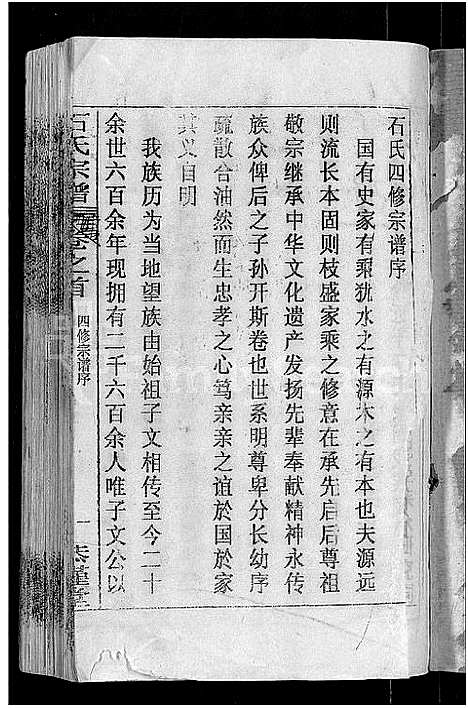 石氏四修宗谱序
国有史家有乘犹水之有源木之有本也夫源远
则流长本固则枝盛家乘之修意在承先启后尊祖
敬宗继承中华文化遗产发扬先辈奉献精神永传
族众俾后之子孙开斯卷也世系明尊卑分长幼序
疏散合油然而生忠孝之心笃亲亲之谊於国於家
其义自明
我族历为当地望族由始祖子文相传至今二十
余世六百余年现拥有二千六百余人唯子文公以
石氏宗谱
卷之首
四修宗谱序
一